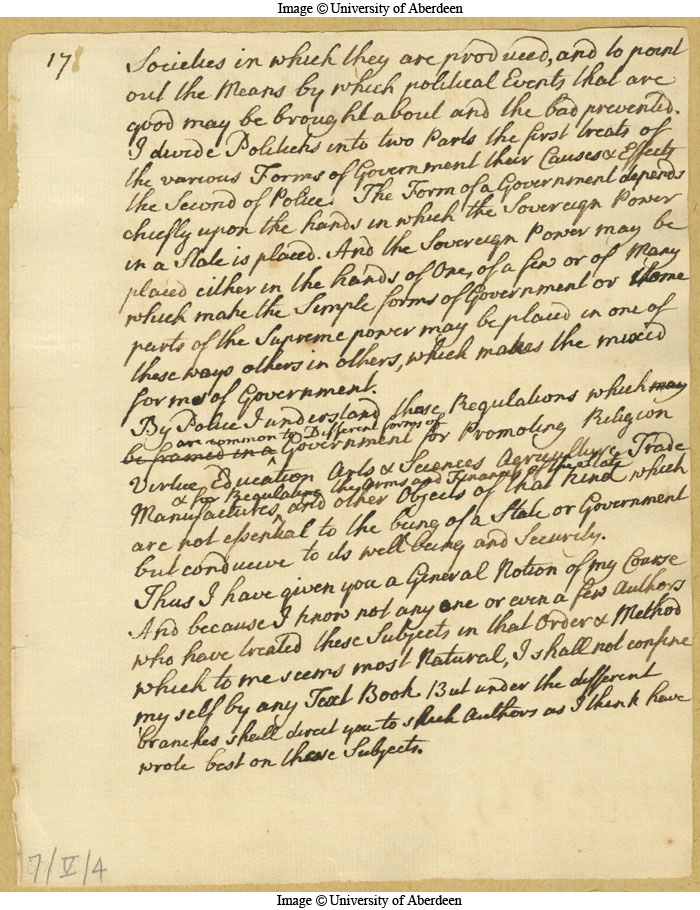 Image © University of Aberdeen
17
Societies in which they are produced, and to point
out the Means by which political Events that are
good may be brought about and the bad prevented.
I divide Politicks into two Parts the first treats of
the various Forms of Government their Causes & Effects
the Second of Police. The Form of a Government depends
chiefly upon the hands in which the Sovereign Power
in a State is placed. And the Sovereign Power may be
placed either in the hands of One, of a few or of Many
which make the Simple forms of Government or Some
parts of the Supreme power may be placed in one of
these ways others in others, which makes the mixed
forms of Government.
By Police I understand those Regulations which may
are common to Different forms of
be framed in a Government for Promoting Religion
Virtue Education Arts & Sciences Agriculture Trade
& for Regulating the Arms and Finances of the State
Manufactures, and other Objects of that kind which
are not essential to the being of a State or Government
but conducive to its well being and Security.
Thus I have given you a General Notion of my Course
And because I know not any one or even a few Authors
who have treated these Subjects in that Order & Method
which to me seems most Natural, I shall not confine
my self by any Text Book. But under the different
branches shall direct you to such Authors as I think have
wrote best on these Subjects.
7/V/4
Image © University of Aberdeen